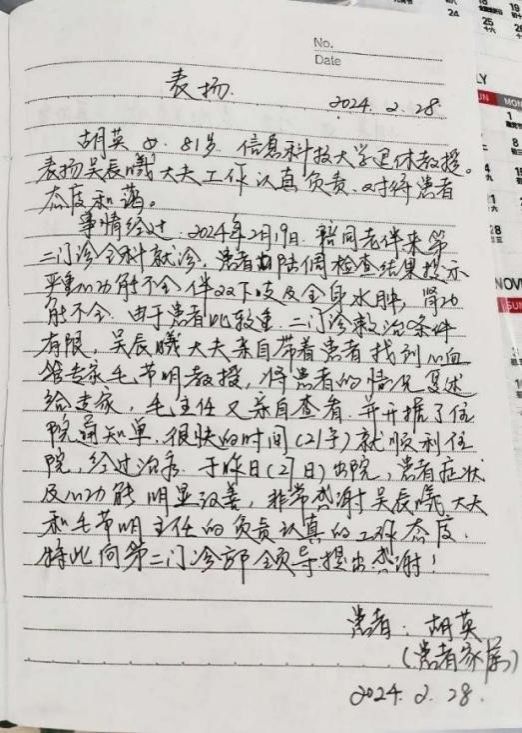 No.
Date
表扬.
2024.2.28.
胡英 女.81岁.信息科技大学退休教授。
表扬吴辰曦大夫工作认真负责、对待患者
态度和蔼。
事情经过:2024年2月19日.陪同老伴来第
二门诊全科就诊,患者胡陆倜检查结果提示
严重心功能不全伴双下肢及全身水肿,肾功
能不全.由于患者比较重.二门诊救治条件
有限,吴辰曦大夫亲自带着患者找到心血
管专家毛节明教授,将患者的情况复述
给专家,毛主任又亲自查看.并开据了住
院通知单,很快的时间(21号)就顺利住
院,经过治疗.于昨日(27日)出院,患者症状
及心功能明显改善,非常感谢吴辰曦大夫
和毛节明主任的负责认真的工作态度.
特此向第二门诊部领导提出感谢!
患者:胡英
(患者家属)
2024.2.28.
LY
UN
MON
NOV
SUN
24
25
19